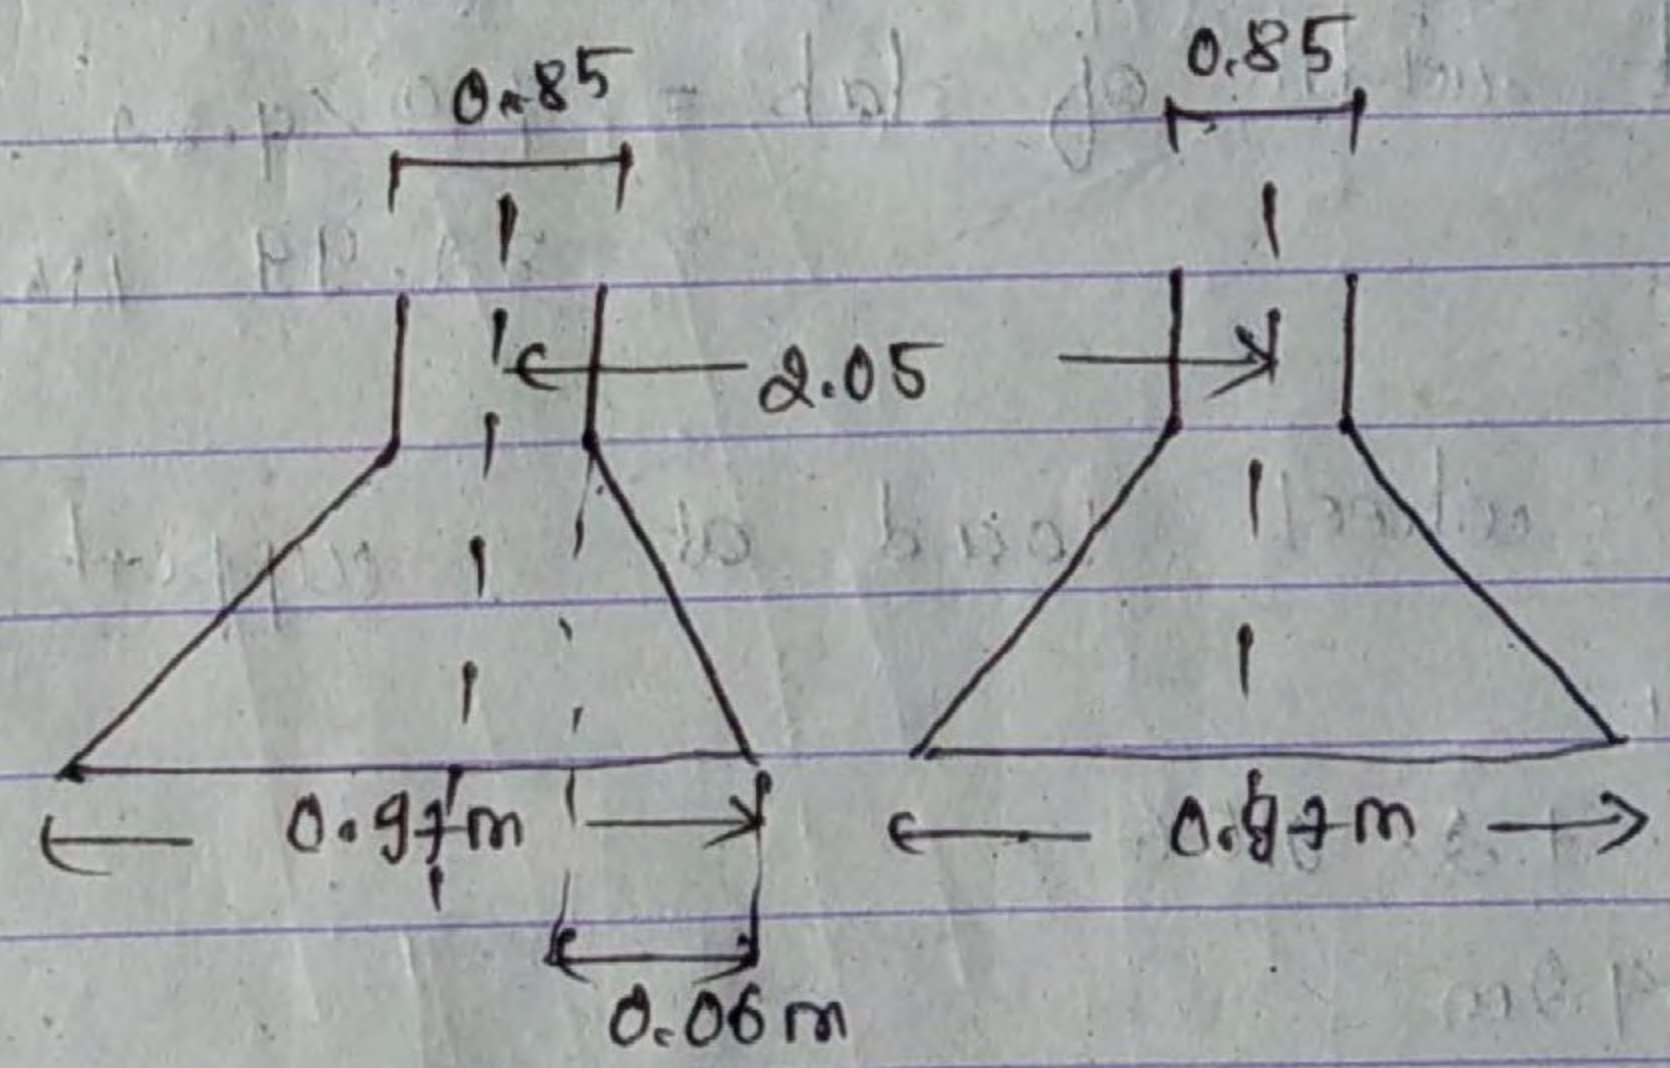 0.85
0.85
2.05
0.97m
0.97m
0.06m